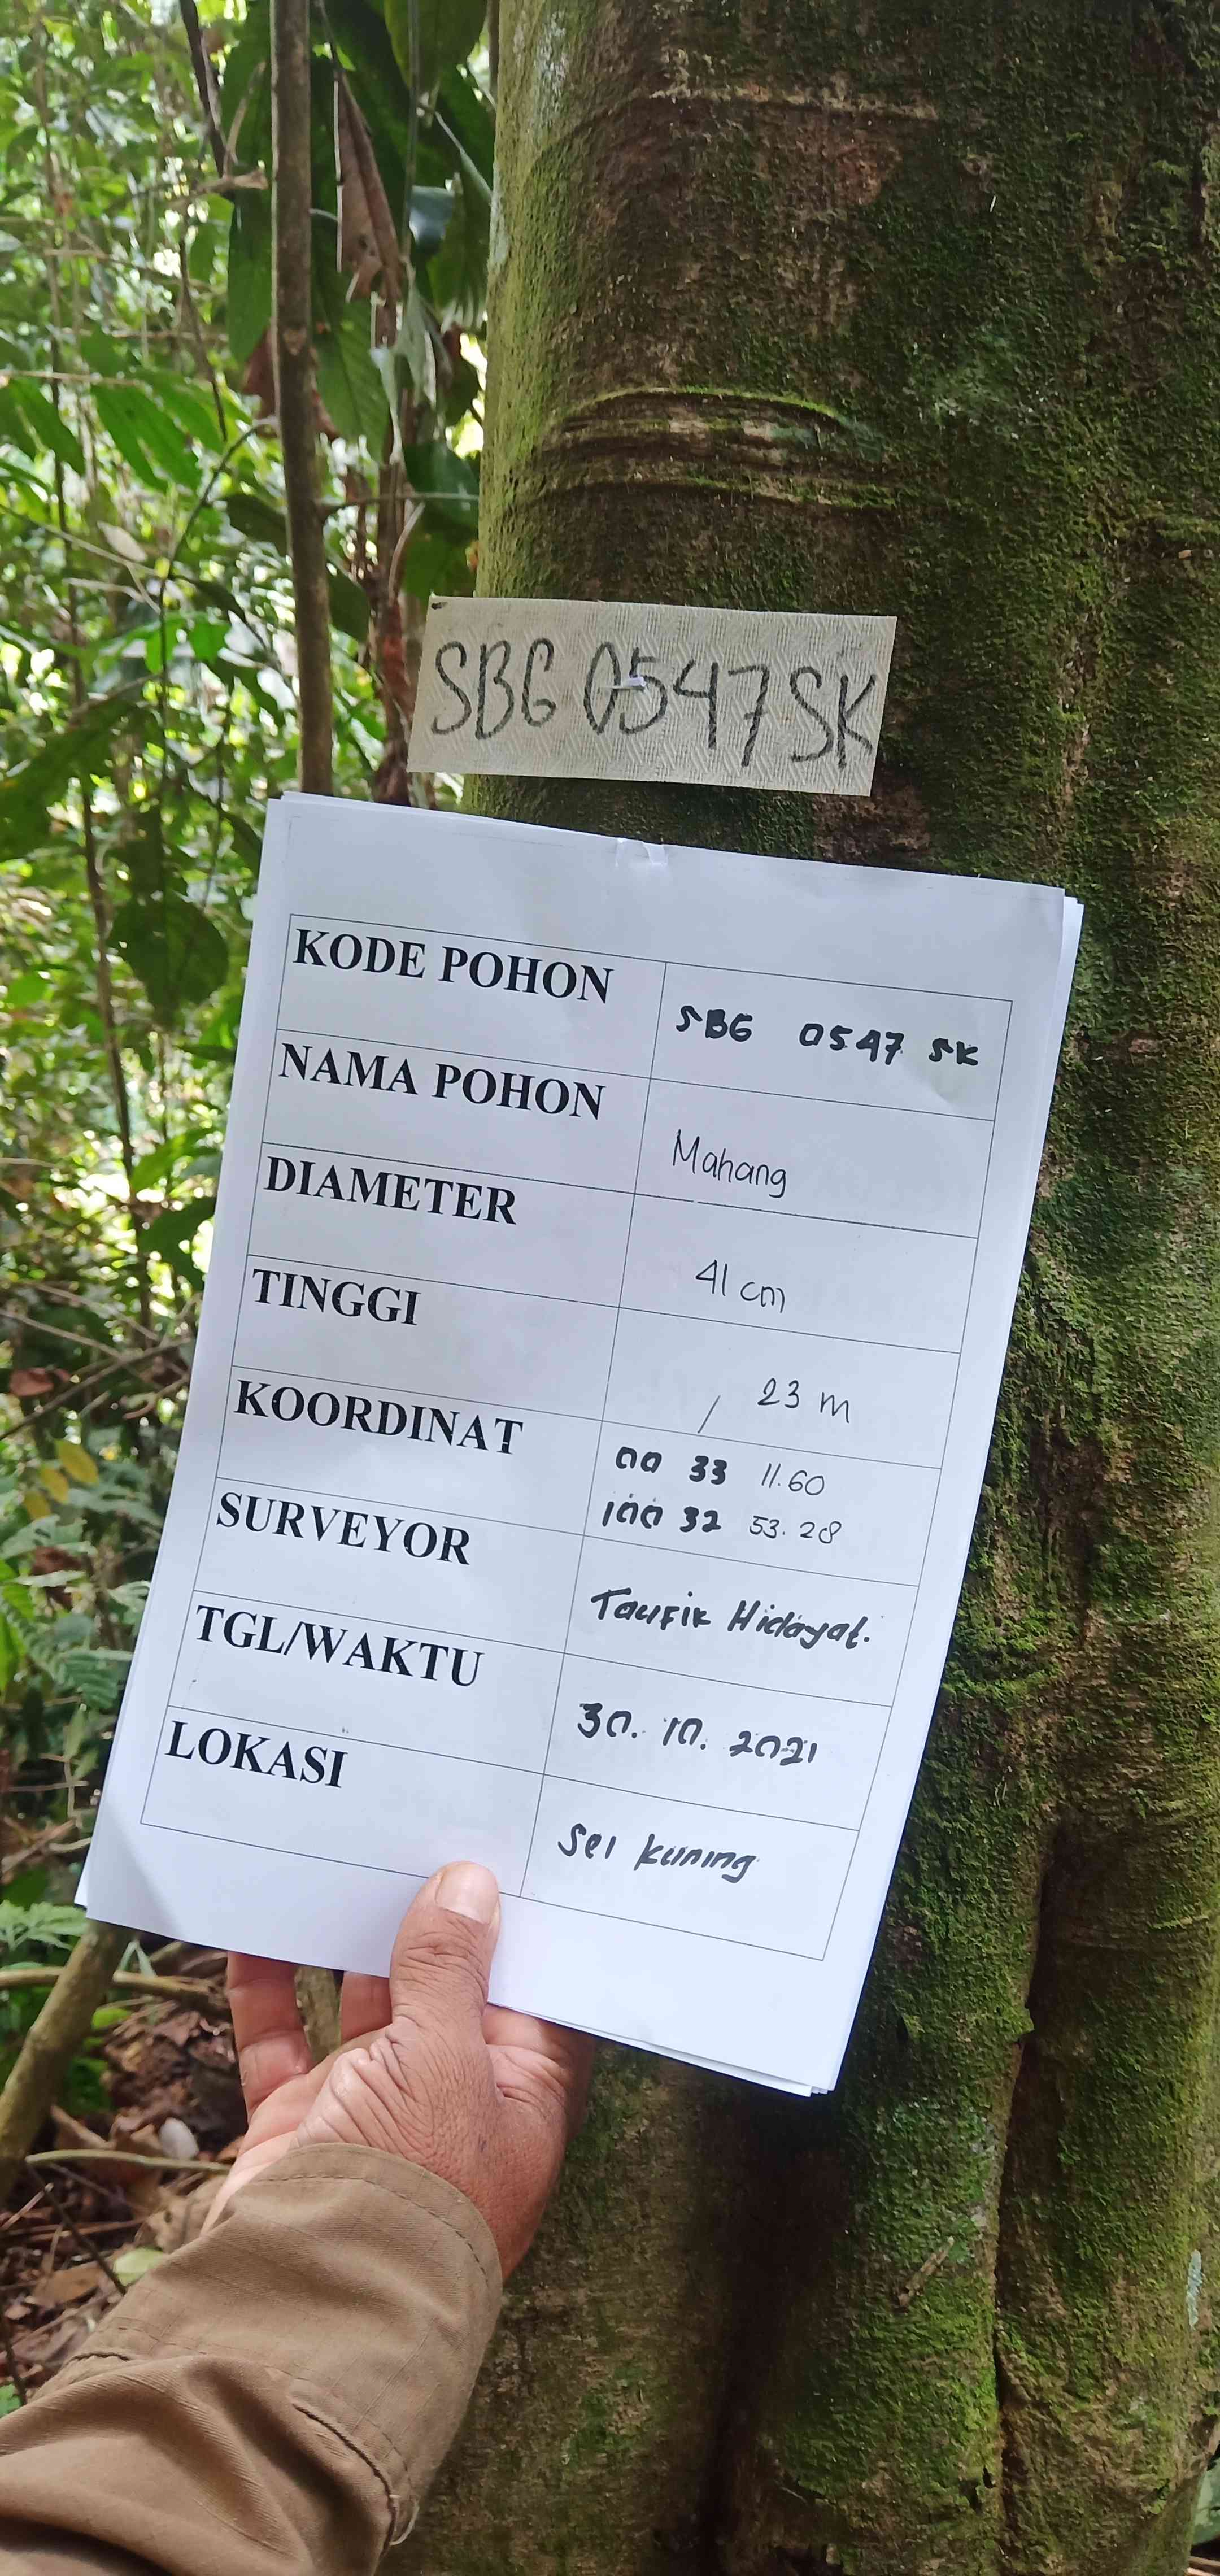 SBG 0547 SK
KODE POHON SBG 0547 SK
NAMA POHON Mahang
DIAMETER 41 cm
TINGGI 23 m
KOORDINAT 00 33 11.60
100 32 53.28
SURVEYOR Taufik Hidayat.
TGL/WAKTU 30. 10. 2021
LOKASI Sei Kuning